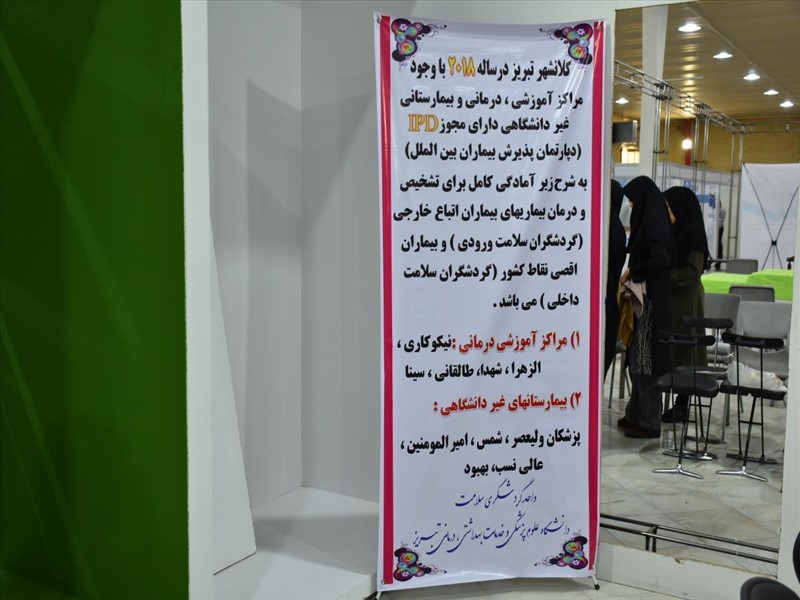 کلانشهر تبریز درساله ۲۰۱۸ با وجود
مراکز آموزشی ، درمانی و بیمارستانی
غیر دانشگاهی دارای مجوز IPD
(دپارتمان پذیرش بیماران بین الملل)
به شرح زیر آمادگی کامل برای تشخیص
و درمان بیماریهای بیماران اتباع خارجی
(گردشگران سلامت ورودی ) و بیماران
اقصی نقاط کشور (گردشگران سلامت
داخلی ) می باشد .
۱) مراکز آموزشی درمانی : نیکوکاری ،
الزهرا ، شهدا، طالقانی ، سینا
۲) بیمارستانهای غیر دانشگاهی :
پزشکان ولیعصر ، شمس ، امیر المومنین ،
عالی نسب، بهبود
واحد گردشگری سلامت
دانشگاه علوم پزشکی و خدمات بهداشتی ، درمانی تبریز